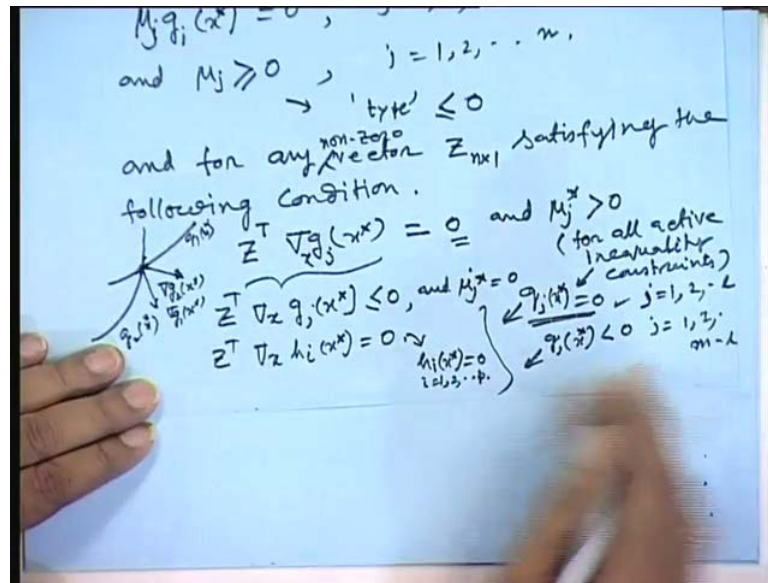 μj gj(x*) = 0,
and μj ≥ 0, j = 1, 2, ·· m.
→ 'type' ≤ 0
and for any non-zero vector Z n×1 satisfying the
following condition.
Z^T ∇x gj(x*) = 0 and μj* > 0
(for all active
inequality
constraints)
Z^T ∇x gj(x*) ≤ 0, and μj* = 0
gj(x*) = 0 j = 1, 2, ·· l
Z^T ∇x hi(x*) = 0
hi(x*) = 0
i = 1, 2, ·· p.
gj(x*) < 0 j = 1, 2, ·
m - l
g1(x)
∇g2(x*)
∇g1(x*)
g2(x)